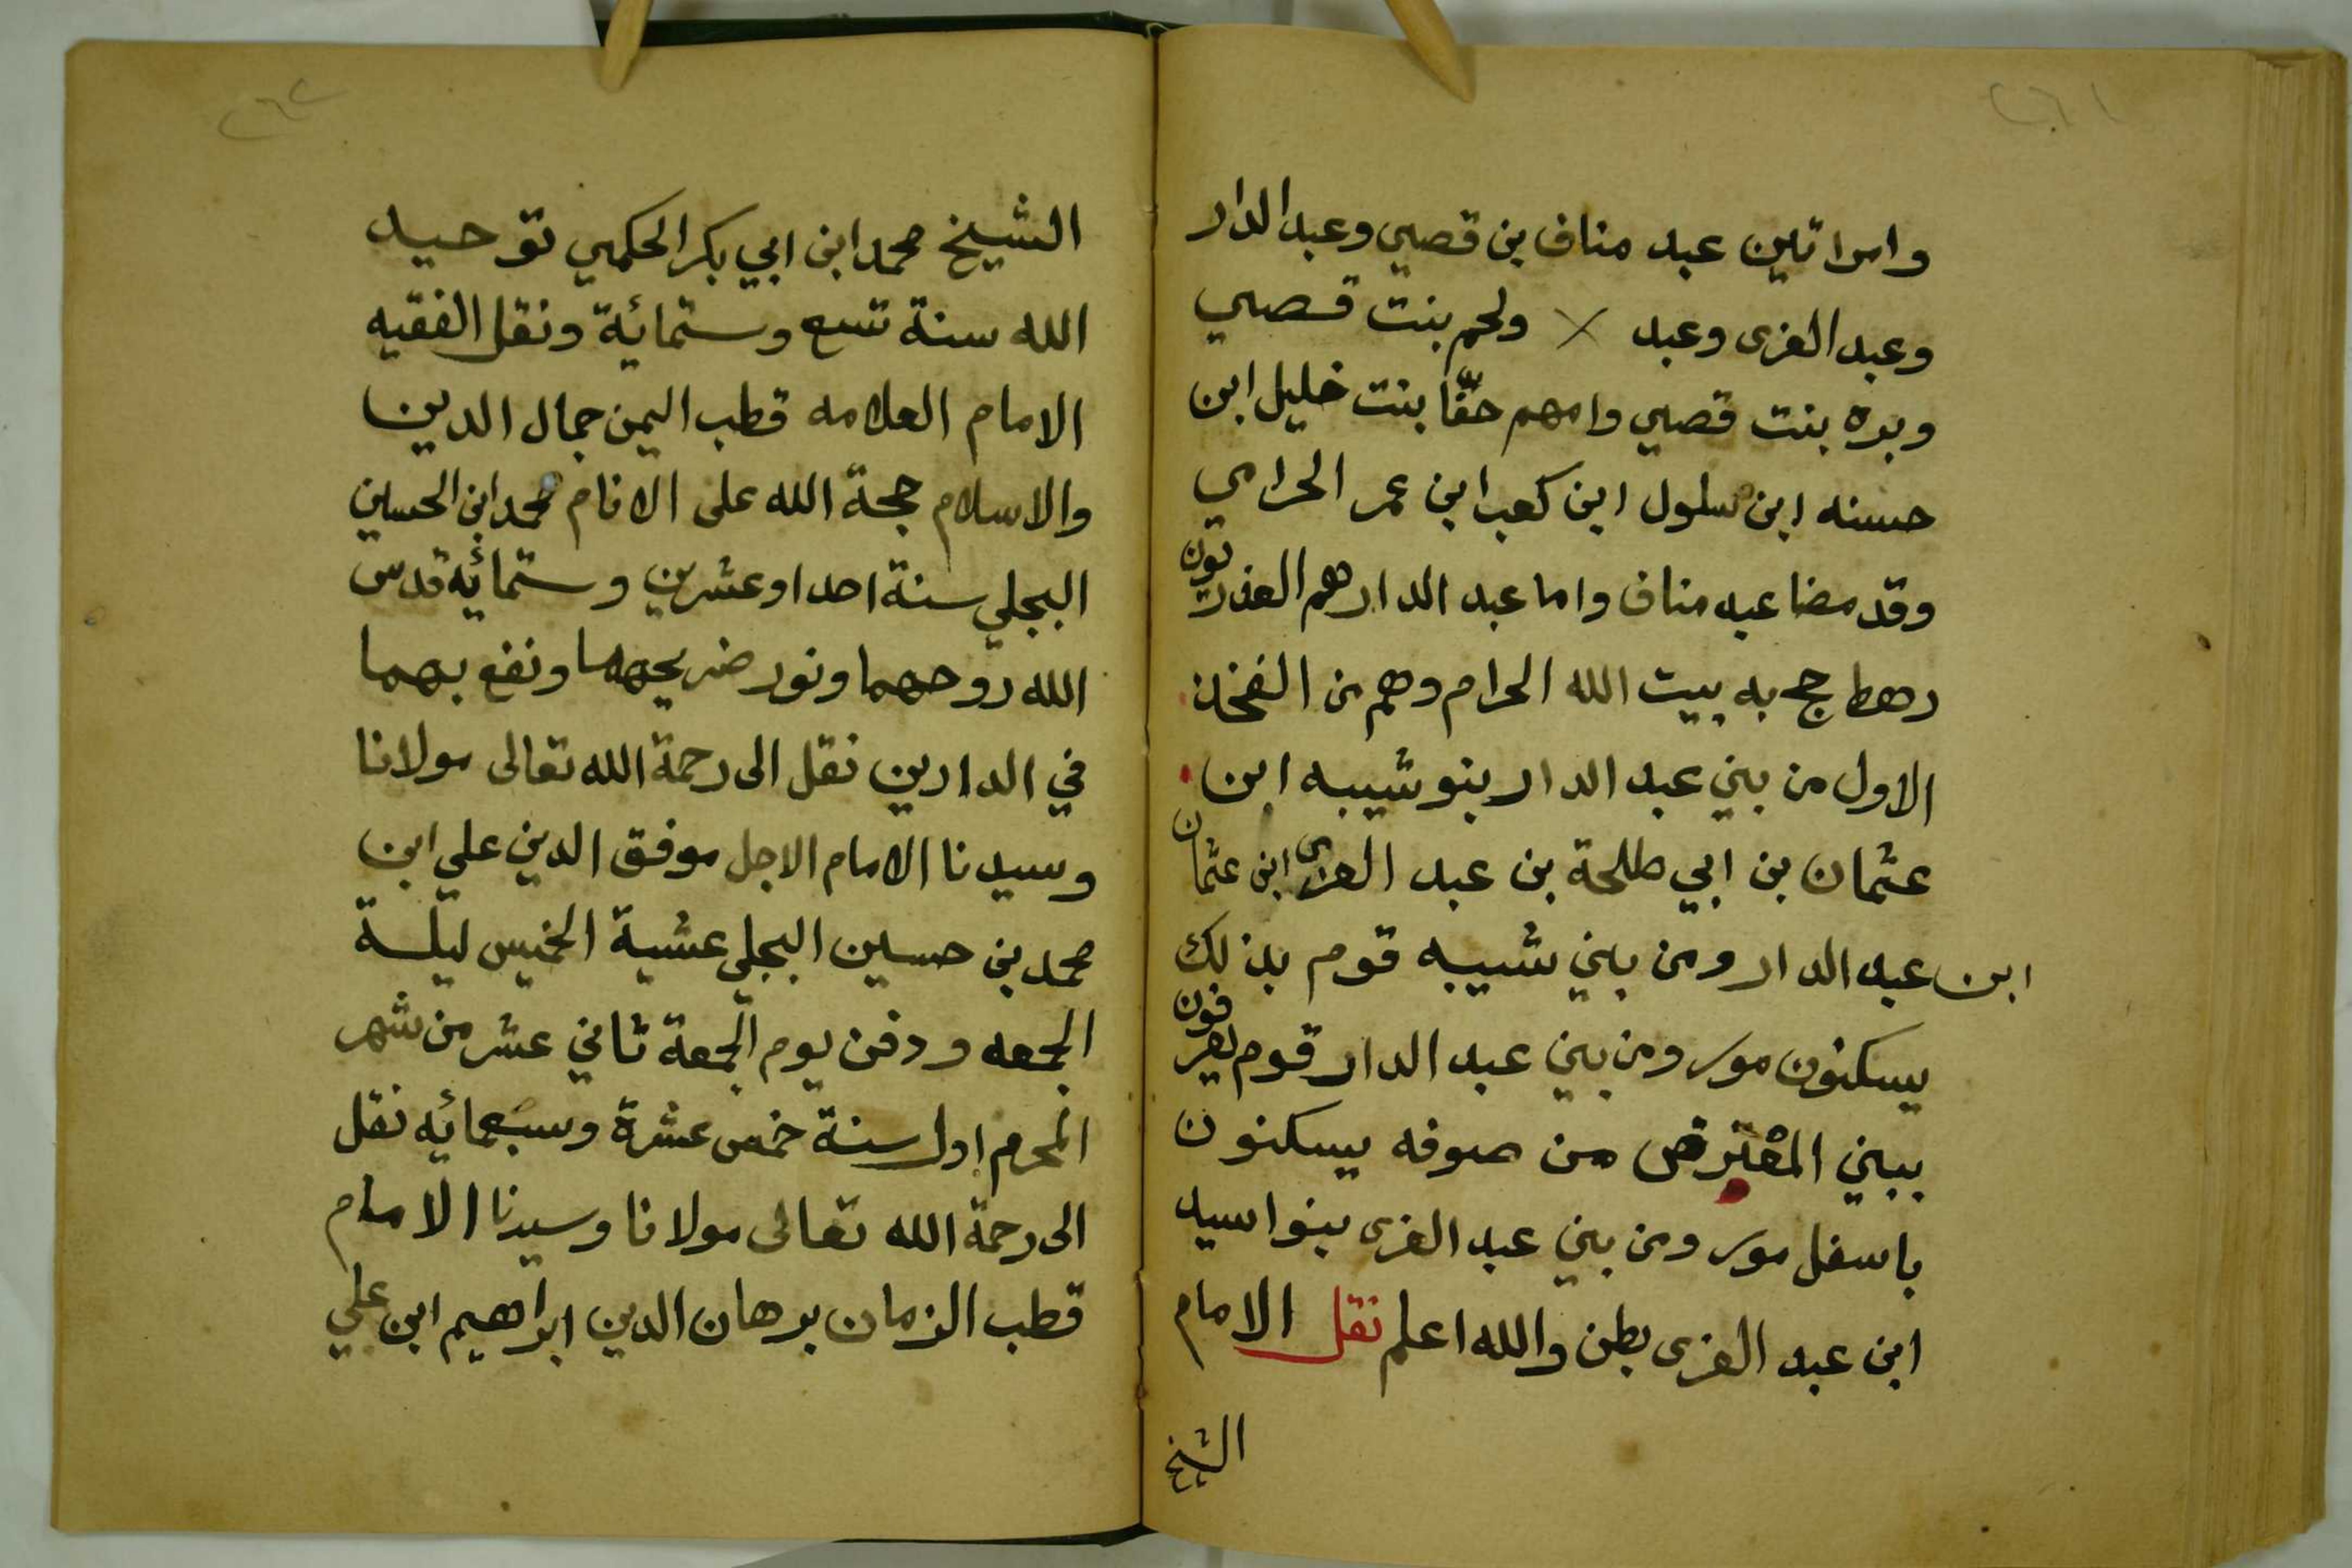 ٢٦١
وامراتين عبد مناف بن قصي وعبد الدار
وعبد العزى وعبد × ولحم بنت قصي
وبره بنت قصي وامهم حقّا بنت خليل ابن
حسنه ابن سلول ابن كعب ابن عمر الحرامي
وقد مضا عبد مناف واما عبد الدار هم العذريون
رهط حج به بيت الله الحرام وهم من الفخذ
الاول من بني عبد الدار بنو شيبه ابن
عثمان بن ابي طلحة بن عبد العزى ابن عثمان
ابن عبد الدار ومن بني شيبه قوم بذلك
يسكنون مور ومن بني عبد الدار قوم يعرفون
ببني المعترض من صوفه يسكنون
باسفل مور ومن بني عبد العزى بنوا سيد
ابن عبد العزى بطن والله اعلم نقل الامام
الشيخ
٢٦٢
الشيخ محمد ابن ابي بكر الحكمي توحيد
الله سنة تسع وستمائة ونقل الفقيه
الامام العلامه قطب اليمن جمال الدين
والاسلام حجة الله على الانام محمد ابن الحسين
البجلي سنة احدا وعشرين وستمائه قدس
الله روحهما ونور ضريحهما ونفع بهما
في الدارين نقل الى رحمة الله تعالى مولانا
وسيدنا الامام الاجل موفق الدين علي ابن
محمد بن حسين البجلي عشية الخميس ليلة
الجمعه ودفن يوم الجمعة ثاني عشر من شهر
المحرم اول سنة خمس عشرة وسبعمائه نقل
الى رحمة الله تعالى مولانا وسيدنا الامام
قطب الزمان برهان الدين ابراهيم ابن علي